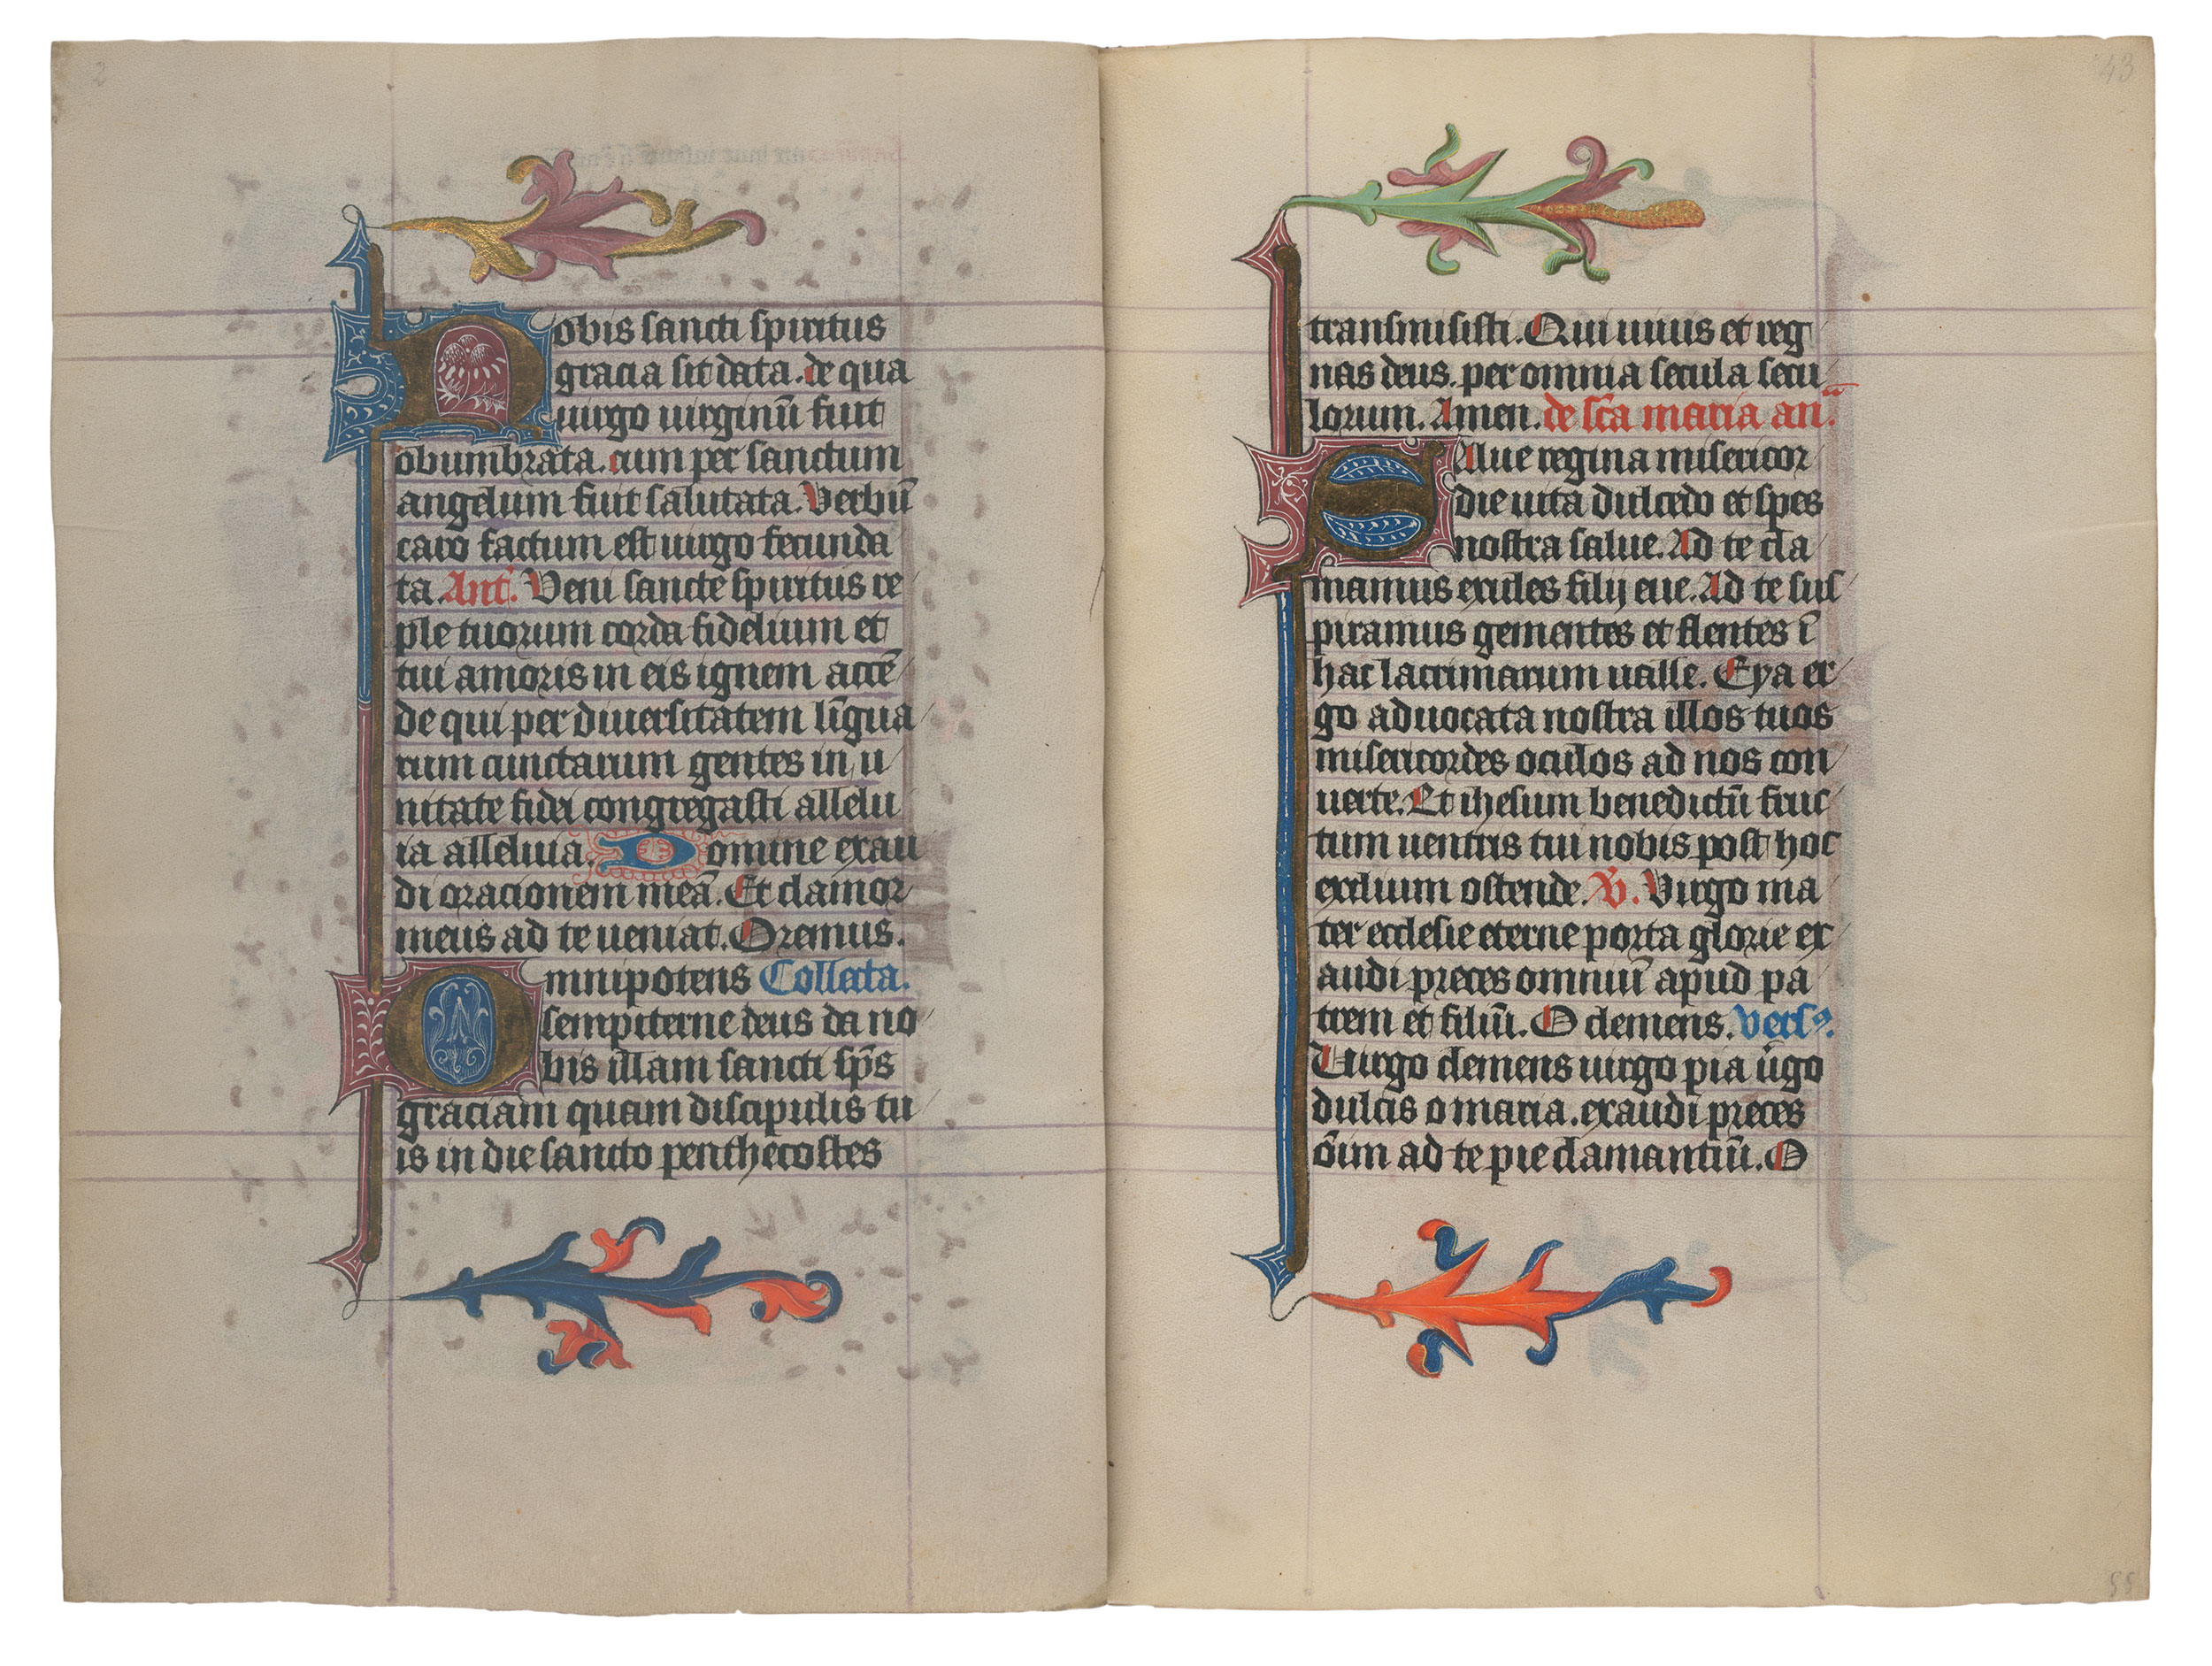 2
Nobis sancti spiritus
gracia sit data. de qua
uirgo uirginū fuit
obumbrata. cum per sanctum
angelum fuit salutata. Verbū
caro factum est uirgo fecunda
ta. Ant̄. Veni sancte spiritus re
ple tuorum corda fidelium et
tui amoris in eis ignem accē
de qui per diuersitatem lingua
rum cunctarum gentes in u
nitate fidei congregasti allelu
ia alleluia. Domine exau
di oracionem meā. Et clamor
meus ad te ueniat. Oremus.
Omnipotens Collecta.
sempiterne deus da no
bis illam sancti sp̄s
graciam quam discipulis tu
is in die sancto penthecostes
43
transmisisti. Qui uiuis et reg
nas deus. per omnia secula secu
lorum. Amen. de sc̄a maria an̄.
SAlue regina misericor
die uita dulcedo et spes
nostra salue. Ad te cla
mamus exules filij eue. Ad te sus
piramus gementes et flentes ī
hac lacrimarum ualle. Eya er
go aduocata nostra illos tuos
misericordes oculos ad nos con
uerte. Et ihesum benedictū fruc
tum uentris tui nobis post hoc
exilium ostende. V. Virgo ma
ter ecclesie eterne porta glorie ex
audi preces omniū apud pa
trem et filiū. O clemens. versꝰ.
Uirgo clemens uirgo pia ūgo
dulcis o maria. exaudi preces
ōim ad te pie clamantiū. O